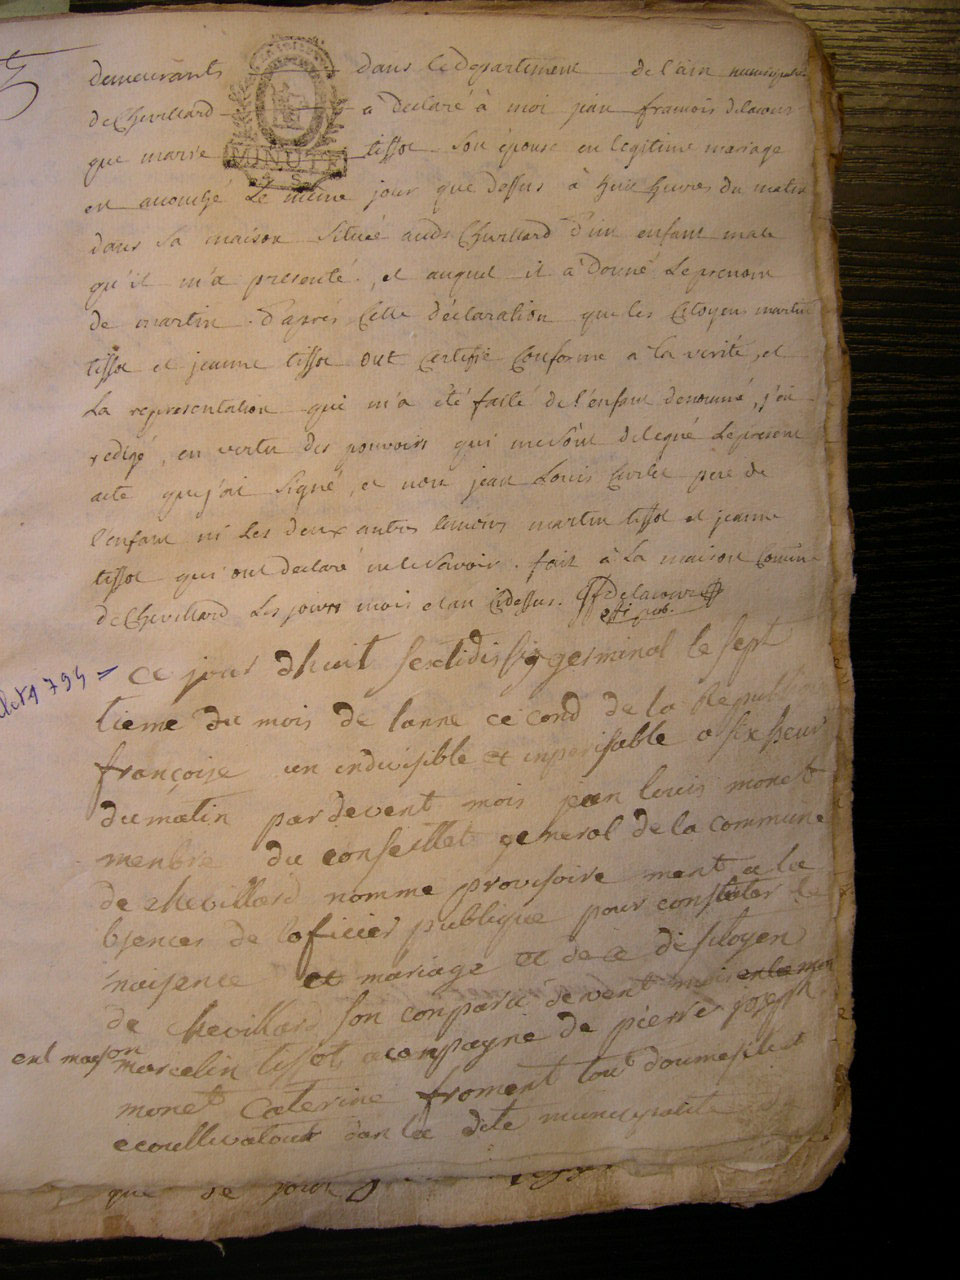 demeurants dans le departement de l'ain municipalité
de Chevillard a declaré à moi jean francois delacour
MINUTE
que marie tissot son épouse en legitime mariage
est accouchée le même jour que dessus à huit heures du matin
dans sa maison située audt Chevillard d'un enfant male
qu'il m'a presenté, et auquel il a donné le prenom
de martin. d'après cette déclaration que les Citoyens martin
tissot et jeanne tissot ont certifié conforme a la verité, et
la representation qui m'a été faite de l'enfant denommé, j'ai
redigé, en vertu des pouvoirs qui me sont delegué le present
acte que j'ai signé, et non jean Louis père de
l'enfant ni les deux autres temoins martin tissot et jeanne
tissot qui ont declaré ne le savoir. fait à la maison Commune
de Chevillard les jours mois et an cidessus. Delacour
off pub.
1794 =
ce jour dhuit sextidi germinal le sept
tieme du mois de lanne cecond de la Republique
françoise un indivisible et inperisable a six heur
du matin pardevent mois jean louis monet
menbre du conseillet general de la commune
de chevillard nomme provisoire ment a la
bsences de loficier publique pour constater le
naisence et mariage et de ce de sitoyen
de chevillard son conparu devent mois en la mon
ent maison
marcelin tissot acompagne de pierre joseph
monet caterine froment tout doumesilet
ecoultivatout dan la dite municipalite
que se jour